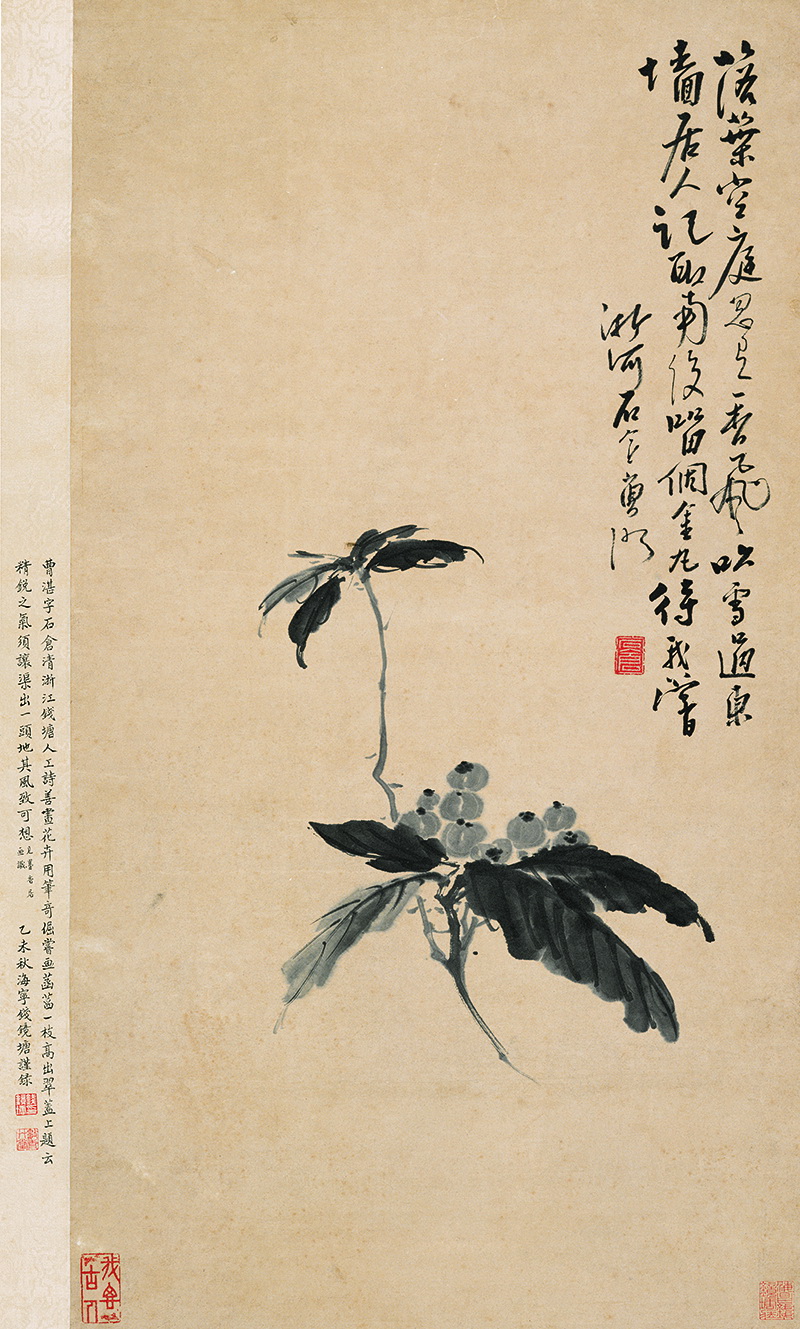 落葉空庭思是香飛飛吹雪過東
墻居人記取南役留個金丸待我嘗
浙河石倉曹湛
曹湛字石倉清浙江錢塘人工詩善畫花卉用筆奇倔嘗画菡萏一枝高出翠蓋上題云
精銳之氣須讓渠出一頭地其風致可想見墨香居画識
乙未秋海寧錢鏡塘謹錄
我無古人